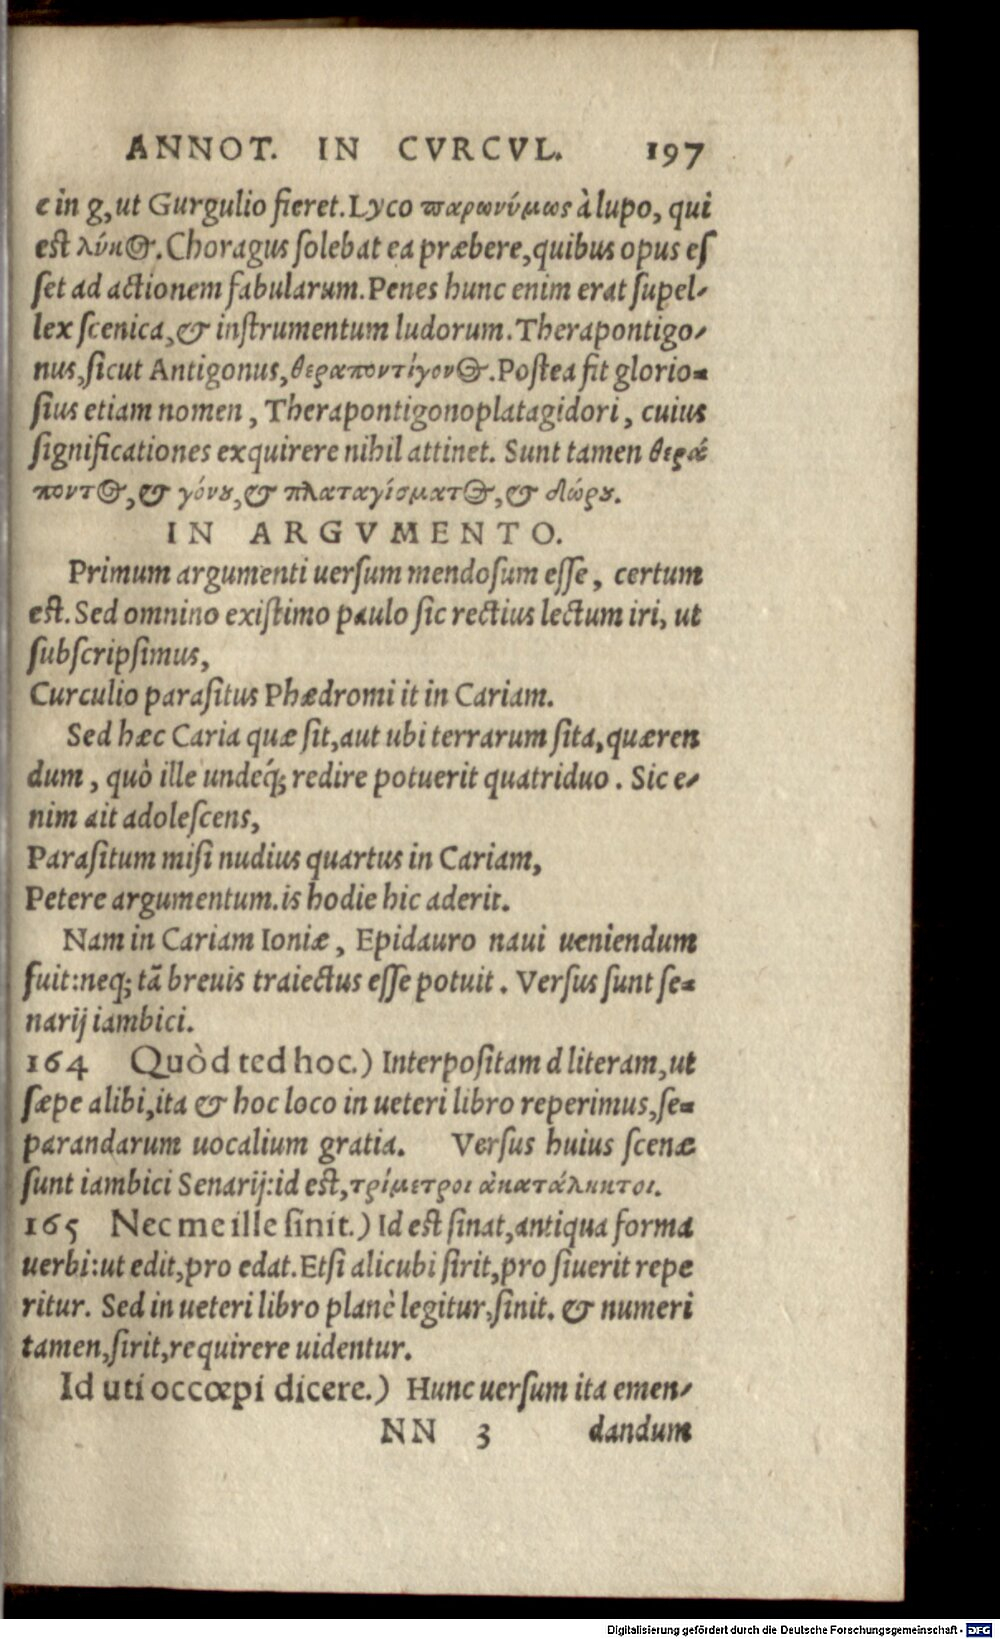 ANNOT. IN CVRCVL. 197
c in g, ut Gurgulio fieret. Lyco παρωνύμως à lupo, qui
est λύκος. Choragus solebat ea præbere, quibus opus es
set ad actionem fabularum. Penes hunc enim erat supel-
lex scenica, & instrumentum ludorum. Therapontigo-
nus, sicut Antigonus, θεραποντίγονος. Postea fit glorio-
sius etiam nomen, Therapontigonoplatagidori, cuius
significationes exquirere nihil attinet. Sunt tamen θερά
ποντος, & γόνου, & πλαταγίσματος, & δώρου.
IN ARGVMENTO.
Primum argumenti uersum mendosum esse, certum
est. Sed omnino existimo paulo sic rectius lectum iri, ut
subscripsimus,
Curculio parasitus Phædromi it in Cariam.
Sed hæc Caria quæ sit, aut ubi terrarum sita, quæren
dum, quò ille undeq́; redire potuerit quatriduo. Sic e-
nim ait adolescens,
Parasitum misi nudius quartus in Cariam,
Petere argumentum. is hodie hic aderit.
Nam in Cariam Ioniæ, Epidauro naui ueniendum
fuit: neq; tā breuis traiectus esse potuit. Versus sunt se-
narij iambici.
164 Quòd ted hoc.) Interpositam d literam, ut
sæpe alibi, ita & hoc loco in ueteri libro reperimus, se-
parandarum uocalium gratia. Versus huius scenæ
sunt iambici Senarij: id est, τρίμετροι ἀκατάληκτοι.
165 Nec me ille sinit.) Id est sinat, antiqua forma
uerbi: ut edit, pro edat. Etsi alicubi sirit, pro siuerit repe
ritur. Sed in ueteri libro planè legitur, sinit. & numeri
tamen, sirit, requirere uidentur.
Id uti occœpi dicere.) Hunc uersum ita emen-
NN 3 dandum
Digitalisierung gefördert durch die Deutsche Forschungsgemeinschaft - DFG